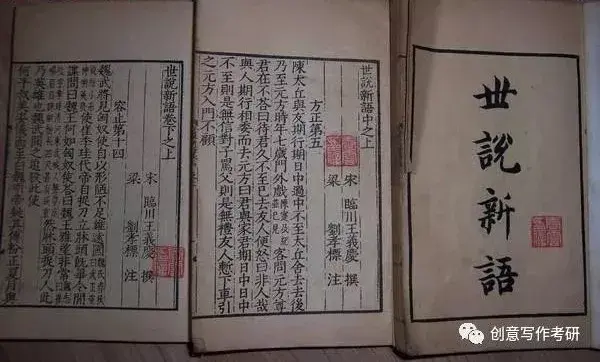 世說新語
世說新語中之上
宋 臨川王義慶 撰
梁 劉孝標 注
方正第五
陳太丘與友期行期日中過中不至太丘舍去去後
乃至元方時年七歲門外戲客問元方尊
君在不荅曰待君久不至已去友人便怒曰非人哉
與人期行相委而去元方曰君與家君期日中日中
不至則是無信對子罵父則是無禮友人慙下車引
之元方入門不顧
世說新語卷下之上
宋 臨川王義慶 撰
梁 劉孝標 注
容止第十四
魏武將見匈奴使自以形陋不足雄遠國
使崔季珪代帝自捉刀立牀頭既畢令間
諜問曰魏王何如匈奴使荅曰魏王雅望非常
然牀頭捉刀人此
乃英雄也魏武聞之追殺此使
何平叔美姿儀面至白魏明帝疑其傅粉正夏月與
创意写作考研